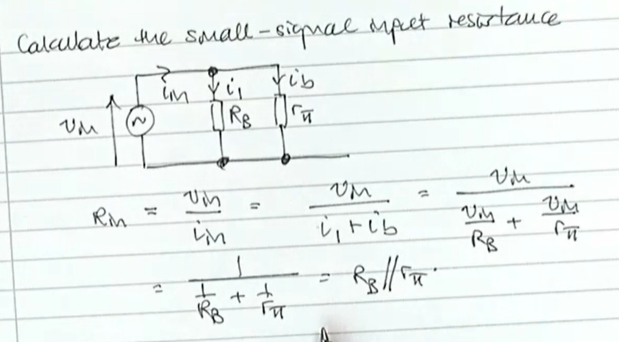 Calculate the small-signal input resistance
vin iin i1 ib
RB rπ
Rin = vin/iin = vin/(i1 + ib) = vin/(vin/RB + vin/rπ)
= 1/(1/RB + 1/rπ) = RB//rπ.